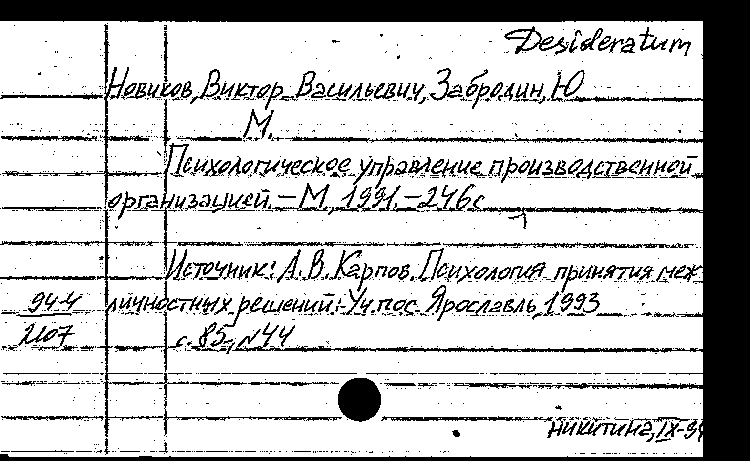 Desideratum
Новиков, Виктор Васильевич, Забродин, Ю
М.
Психологическое управление производственной
организацией. – М., 1991. – 246с
Источник: А.В. Карпов. Психология принятия меж
94-4 личностных решений: Уч. пос. Ярославль, 1993
2107 с. 85, N44
Никитина, IX-94